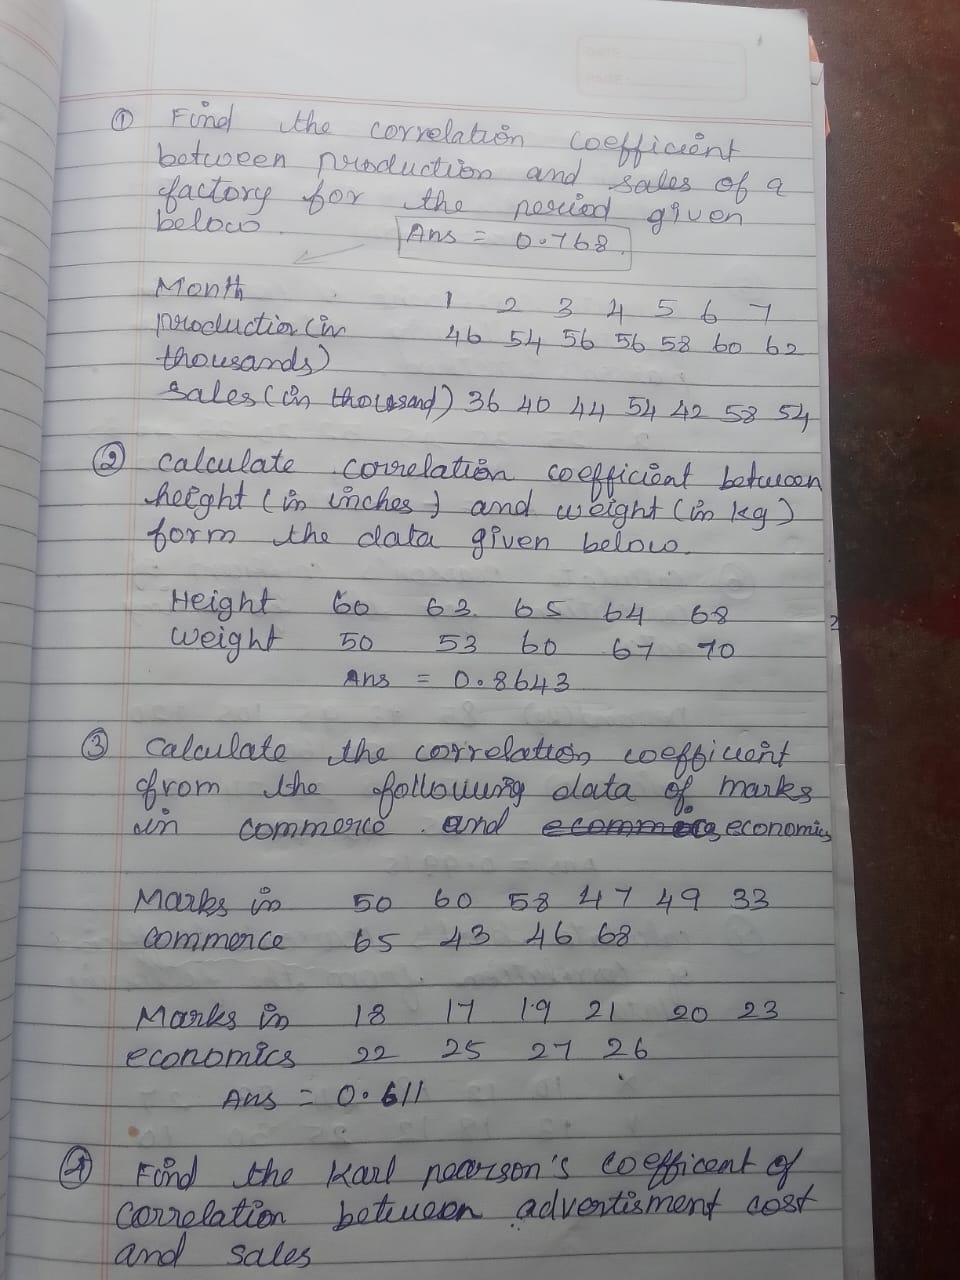 ① Find the correlation coefficient
between production and sales of a
factory for the period given
below.
Ans = 0.768
Month 1 2 3 4 5 6 7
production (in 46 54 56 56 58 60 62
thousands)
sales (in thousand) 36 40 44 54 42 58 54
② calculate correlation coefficient between
height (in inches) and weight (in kg)
form the data given below.
Height 60 63 65 64 68
weight 50 53 60 67 70
Ans = 0.8643
③ calculate the correlation coefficient
from the following data of marks
in commerce and economics
Marks in 50 60 58 47 49 33
commerce 65 43 46 68
Marks in 18 17 19 21 20 23
economics 22 25 27 26
Ans = 0.611
④ Find the Karl pearson's coefficent of
correlation between advertisment cost
and sales